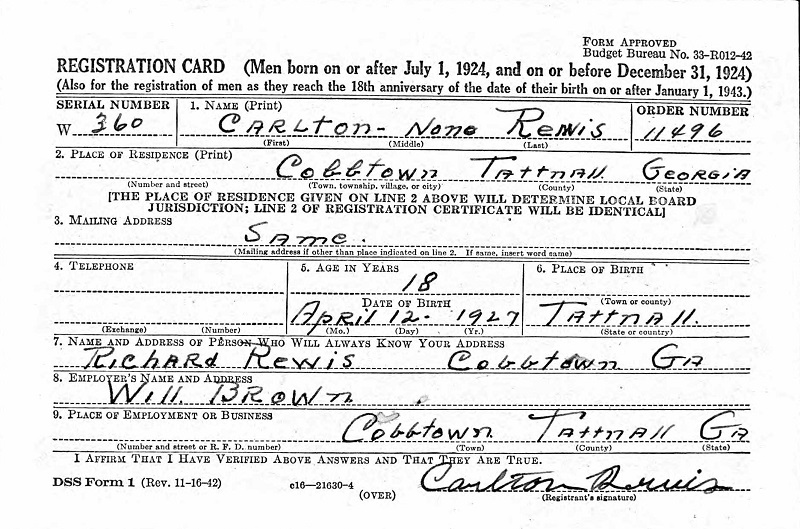 FORM APPROVED
Budget Bureau No. 33-R012-42
REGISTRATION CARD (Men born on or after July 1, 1924, and on or before December 31, 1924)
(Also for the registration of men as they reach the 18th anniversary of the date of their birth on or after January 1, 1943.)
SERIAL NUMBER 1. NAME (Print) ORDER NUMBER
W 360 CARLTON- None REWIS 11496
(First) (Middle) (Last)
2. PLACE OF RESIDENCE (Print)
Cobbtown TATTNALL GEORGIA
(Number and street) (Town, township, village, or city) (County) (State)
[THE PLACE OF RESIDENCE GIVEN ON LINE 2 ABOVE WILL DETERMINE LOCAL BOARD
JURISDICTION; LINE 2 OF REGISTRATION CERTIFICATE WILL BE IDENTICAL]
3. MAILING ADDRESS
SAME.
(Mailing address if other than place indicated on line 2. If same, insert word same)
4. TELEPHONE 5. AGE IN YEARS 6. PLACE OF BIRTH
18
(Town or county)
DATE OF BIRTH
April 12- 1927 TATTNALL.
(Exchange) (Number) (Mo.) (Day) (Yr.) (State or country)
7. NAME AND ADDRESS OF PERSON WHO WILL ALWAYS KNOW YOUR ADDRESS
RICHARD REWIS Cobbtown GA
8. EMPLOYER'S NAME AND ADDRESS
Will BROWN
9. PLACE OF EMPLOYMENT OR BUSINESS
Cobbtown TATTNALL GA
(Number and street or R. F. D. number) (Town) (County) (State)
I AFFIRM THAT I HAVE VERIFIED ABOVE ANSWERS AND THAT THEY ARE TRUE.
DSS Form 1 (Rev. 11-16-42) c16—21630-4 Carlton Rewis
(OVER) (Registrant's signature)